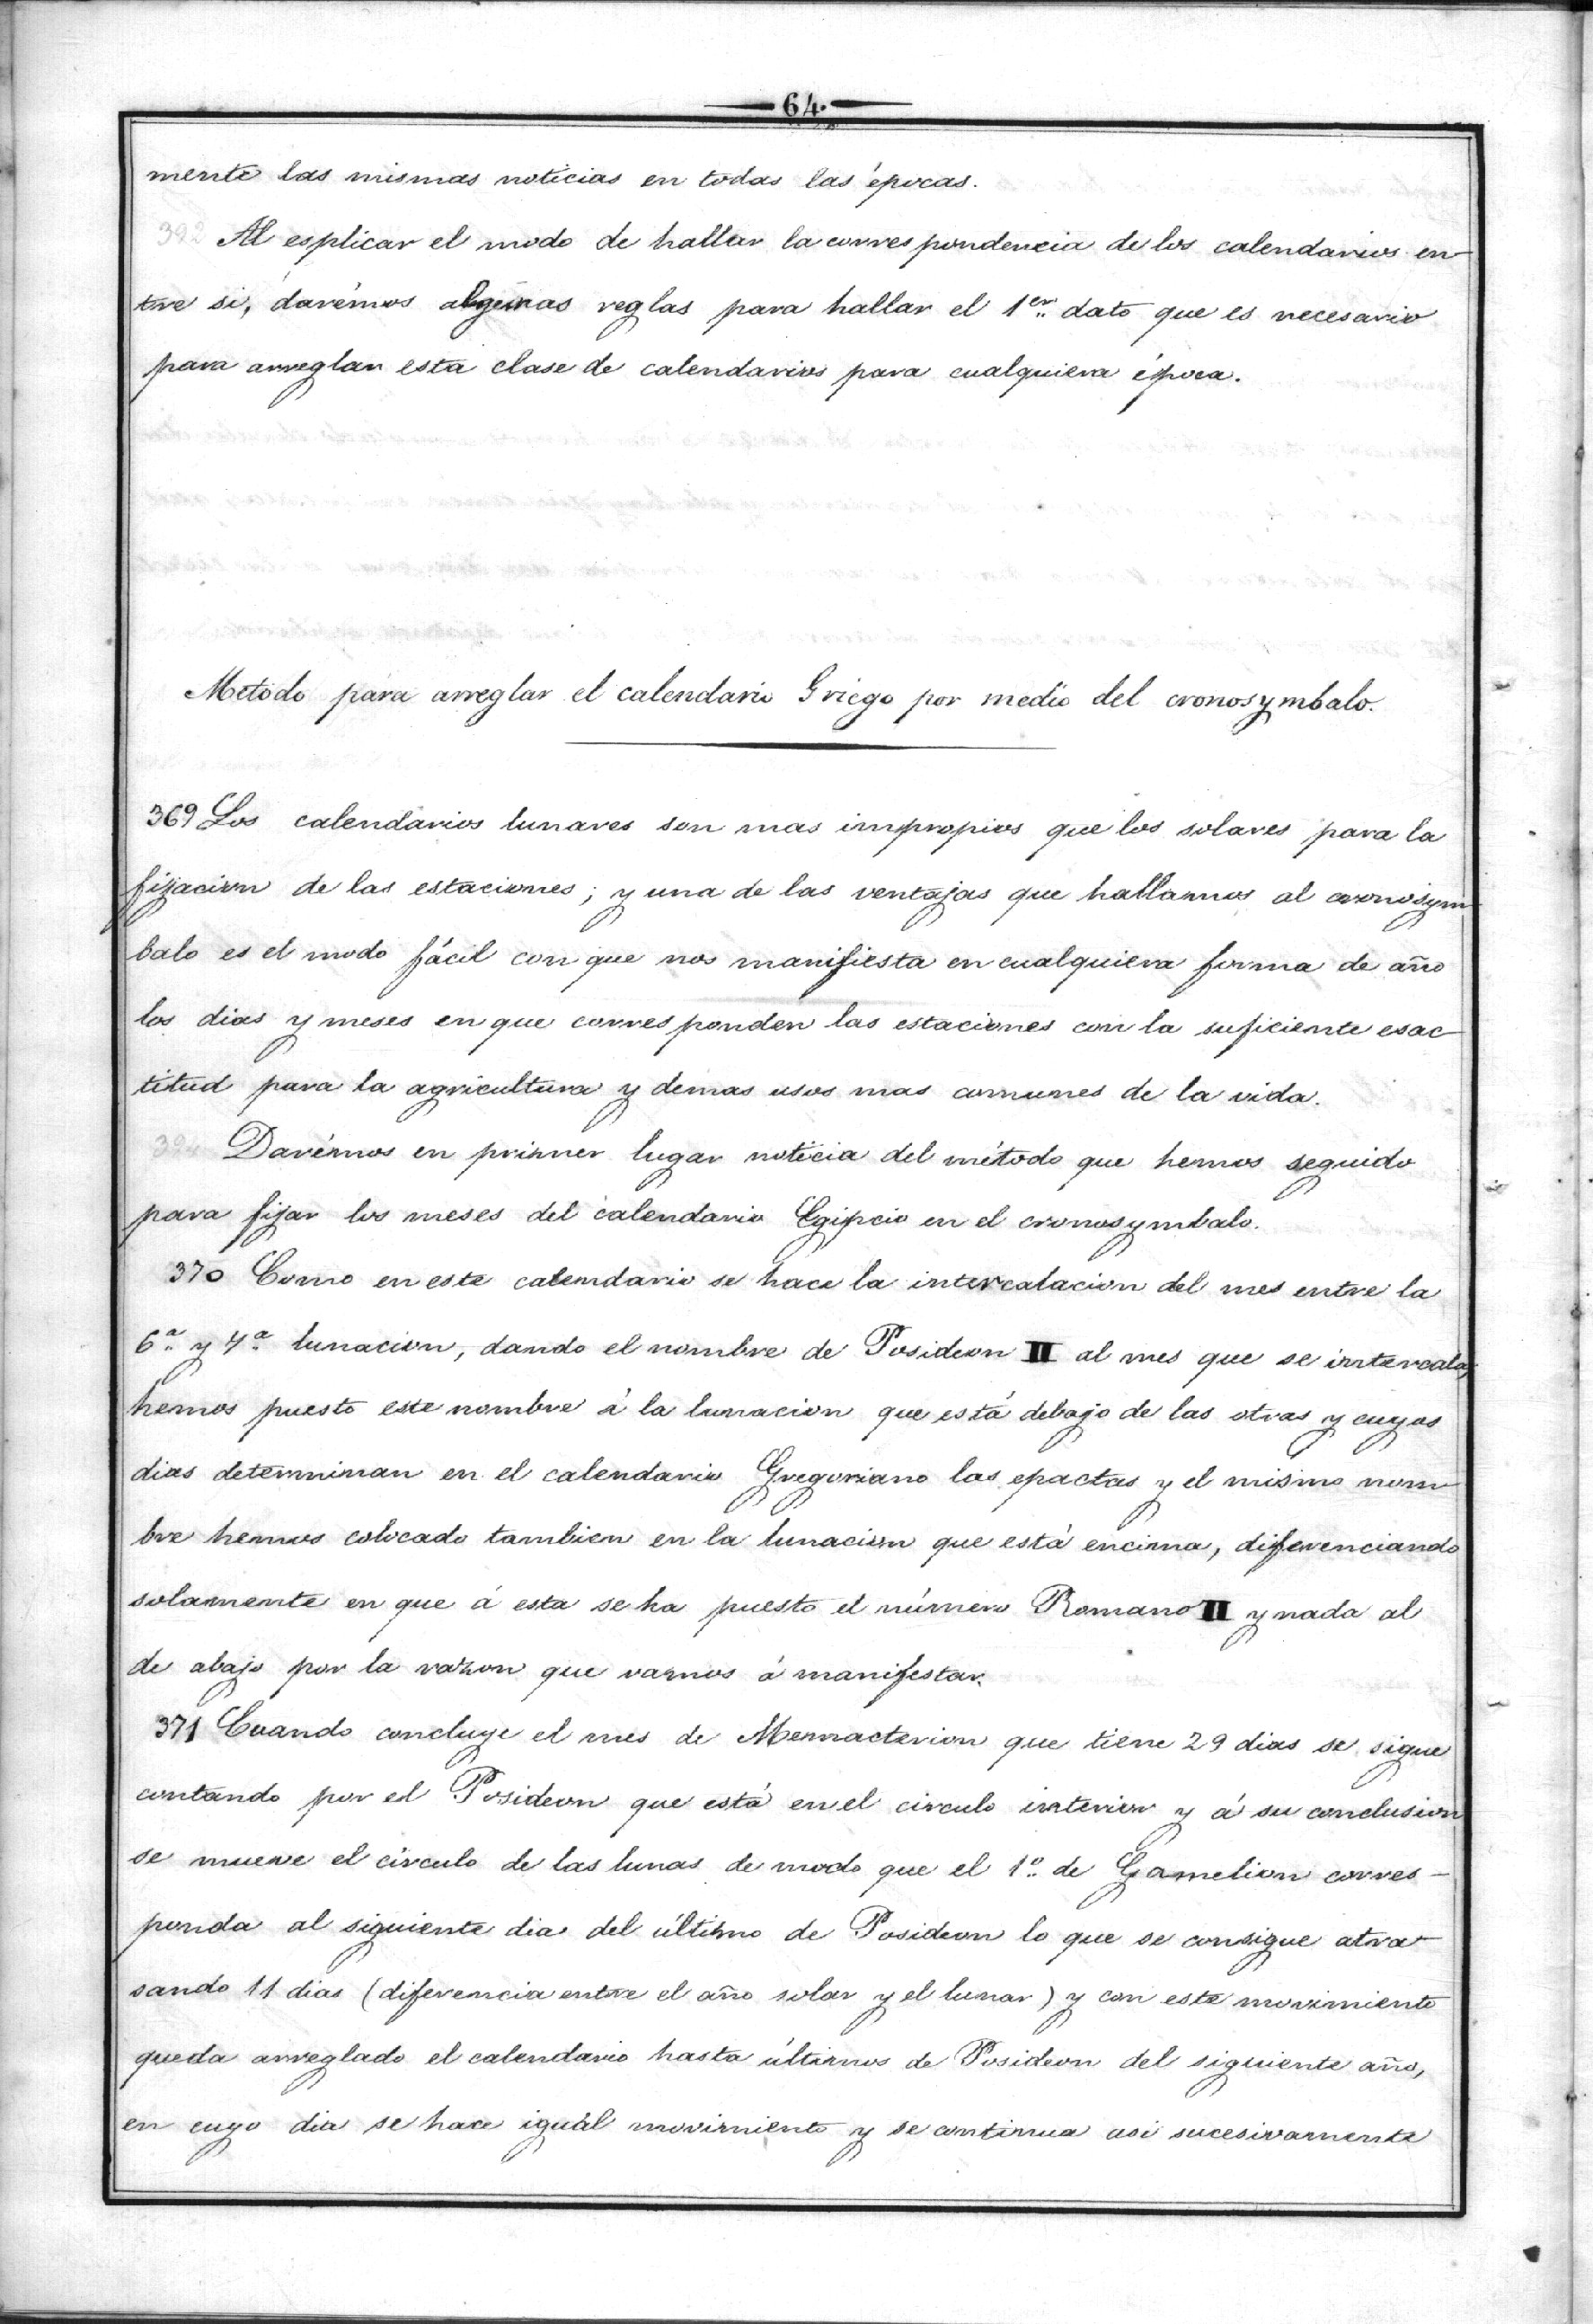 64.
mente las mismas noticias en todas las épocas.
392 Al esplicar el modo de hallar la correspondencia de los calendarios en-
tre si, darémos algunas reglas para hallar el 1er. dato que es necesario
para arreglar esta clase de calendarios para cualquiera época.
Metodo para arreglar el calendario Griego por medio del cronosymbalo.
369 Los calendarios lunares son mas impropios que los solares para la
fijacion de las estaciones; y una de las ventajas que hallamos al cronosym-
balo es el modo fácil con que nos manifiesta en cualquiera forma de año
los dias y meses en que corresponden las estaciones con la suficiente esac-
titud para la agricultura y demas usos mas comunes de la vida.
394 Darémos en primer lugar noticia del método que hemos seguido
para fijar los meses del calendario Egipcio en el cronosymbalo.
370 Como en este calendario se hace la intercalacion del mes entre la
6.ª y 7.ª lunacion, dando el nombre de Posideon II al mes que se intercala,
hemos puesto este nombre á la lunacion que está debajo de las otras y cuyos
dias determinan en el calendario Gregoriano las epactas y el mismo nom-
bre hemos colocado tambien en la lunacion que está encima, diferenciando
solamente en que á esta se ha puesto el número Romano II y nada al
de abajo por la razon que vamos á manifestar.
371 Cuando concluye el mes de Memacterion que tiene 29 dias se sigue
contando por el Posideon que está en el circulo interior y á su conclusion
se mueve el círculo de las lunas de modo que el 1.º de Gamelion corres-
ponda al siguiente dia del último de Posideon lo que se consigue atra-
sando 11 dias (diferencia entre el año solar y el lunar) y con este movimiento
queda arreglado el calendario hasta últimos de Posideon del siguiente año,
en cuyo dia se hace iguál movimiento y se continua asi sucesivamente